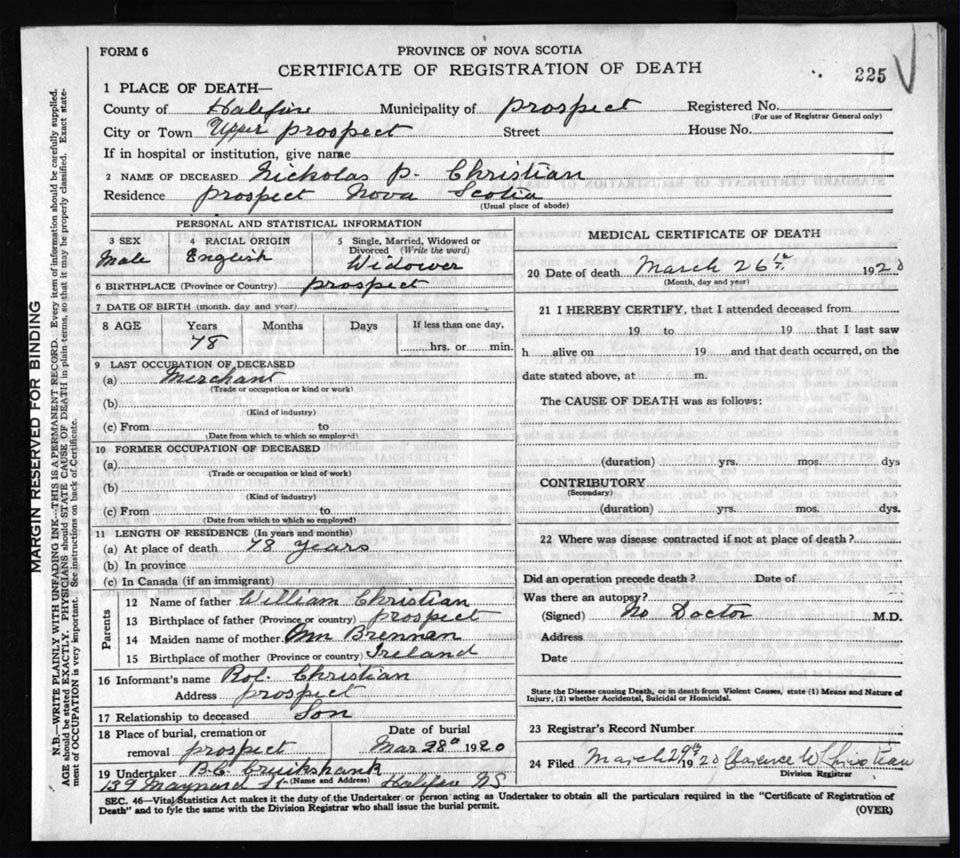 FORM 6
PROVINCE OF NOVA SCOTIA
CERTIFICATE OF REGISTRATION OF DEATH
225
1 PLACE OF DEATH—
County of Halifax Municipality of Prospect Registered No.
(For use of Registrar General only)
City or Town Upper Prospect Street House No.
If in hospital or institution, give name
2 NAME OF DECEASED Nickolas P. Christian
Residence Prospect Nova Scotia
(Usual place of abode)
PERSONAL AND STATISTICAL INFORMATION
3 SEX 4 RACIAL ORIGIN 5 Single, Married, Widowed or
Divorced (Write the word)
Male English Widower
6 BIRTHPLACE (Province or Country) Prospect
7 DATE OF BIRTH (month, day and year)
8 AGE Years Months Days If less than one day,
78 hrs. or min.
9 LAST OCCUPATION OF DECEASED
(a) Merchant
(Trade or occupation or kind or work)
(b)
(Kind of industry)
(c) From to
(Date from which to which so employed)
10 FORMER OCCUPATION OF DECEASED
(a)
(Trade or occupation or kind of work)
(b)
(Kind of industry)
(c) From to
(Date from which to which so employed)
11 LENGTH OF RESIDENCE (In years and months)
(a) At place of death 78 years
(b) In province
(c) In Canada (if an immigrant)
Parents
12 Name of father William Christian
13 Birthplace of father (Province or country) Prospect
14 Maiden name of mother Ann Brennan
15 Birthplace of mother (Province or country) Ireland
16 Informant's name Rol. Christian
Address Prospect
17 Relationship to deceased Son
18 Place of burial, cremation or Date of burial
removal Prospect Mar 28th 1920
19 Undertaker B.C. Cruikshank
139 Maynard St (Name and Address) Halifax NS
MEDICAL CERTIFICATE OF DEATH
20 Date of death March 26th 1920
(Month, day and year)
21 I HEREBY CERTIFY, that I attended deceased from
19 to 19 that I last saw
h alive on 19 and that death occurred, on the
date stated above, at m.
The CAUSE OF DEATH was as follows:
(duration) yrs. mos. dys
CONTRIBUTORY
(Secondary)
(duration) yrs. mos. dys.
22 Where was disease contracted if not at place of death?
Did an operation precede death? Date of
Was there an autopsy?
(Signed) No Doctor M.D.
Address
Date
State the Disease causing Death, or in death from Violent Causes, state (1) Means and Nature of
Injury, (2) whether Accidental, Suicidal or Homicidal.
23 Registrar's Record Number
24 Filed March 29th 1920 Clarence W Christian
Division Registrar
SEC. 46—Vital Statistics Act makes it the duty of the Undertaker or person acting as Undertaker to obtain all the particulars required in the "Certificate of Registration of
Death" and to fyle the same with the Division Registrar who shall issue the burial permit.
(OVER)
MARGIN RESERVED FOR BINDING
N.B.—WRITE PLAINLY WITH UNFADING INK—THIS IS A PERMANENT RECORD. Every item of information should be carefully supplied.
AGE should be stated EXACTLY. PHYSICIANS should STATE CAUSE OF DEATH in plain terms, so that it may be properly classified. Exact state-
ment of OCCUPATION is very important. See instructions on back of Certificate.